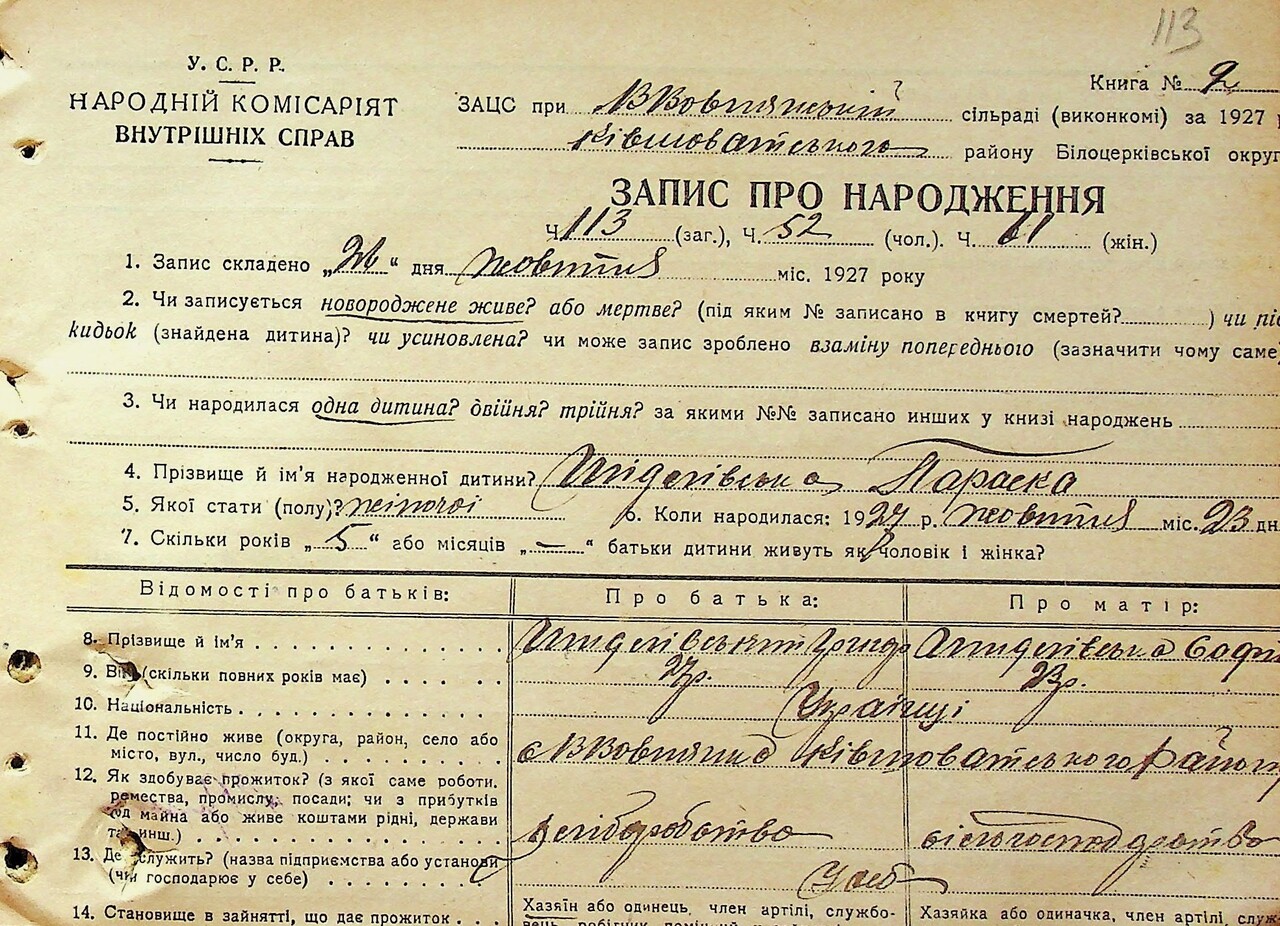 113
У. С. Р. Р.
НАРОДНІЙ КОМІСАРІЯТ
ВНУТРІШНІХ СПРАВ
Книга № 2
ЗАЦС при сільраді (виконкомі) за 1927 р
Ківшоватського району Білоцерківської округ
ЗАПИС ПРО НАРОДЖЕННЯ
Ч. 113 (заг.), Ч. 52 (чол.). Ч. 61 (жін.)
1. Запис складено „26“ дня жовтня міс. 1927 року
2. Чи записується новороджене живе? або мертве? (під яким № записано в книгу смертей? ) чи під
кидьок (знайдена дитина)? чи усиновлена? чи може запис зроблено взаміну попереднього (зазначити чому саме)
3. Чи народилася одна дитина? двійня? трійня? за якими №№ записано инших у книзі народжень
4. Прізвище й ім'я народженної дитини? Параска
5. Якої стати (полу)? жіночої 6. Коли народилася: 1927 р. жовтня міс. 23 дн
7. Скільки років „5“ або місяців „—“ батьки дитини живуть як чоловік і жінка?
Відомості про батьків: Про батька: Про матір:
8. Прізвище й ім'я
9. Вік (скільки повних років має) 27р. 23р.
10. Національність Українці
11. Де постійно живе (округа, район, село або
місто, вул., число буд.) Ківшоватського району
12. Як здобуває прожиток? (з якої саме роботи,
ремества, промислу, посади; чи з прибутків
од майна або живе коштами рідні, держави
та инш.) хліборобство сільгосподарство
13. Де служить? (назва підприємства або установи
(чи господарює у себе) У себе
14. Становище в зайнятті, що дає прожиток
Хазяїн або одинець, член артілі, службо-
Хазяйка або одиначка, член артілі, служ-